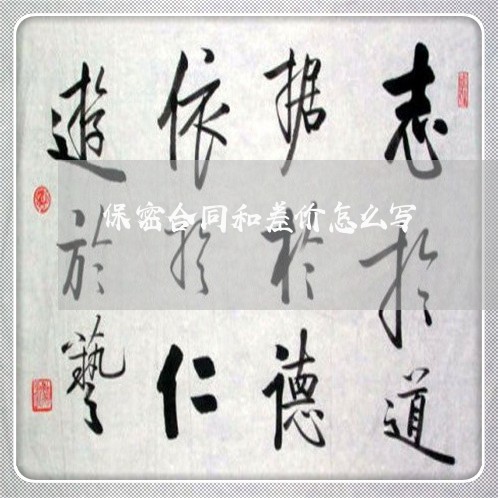 志於道
据於德
依於仁
遊於藝
保密合同和差价怎么写